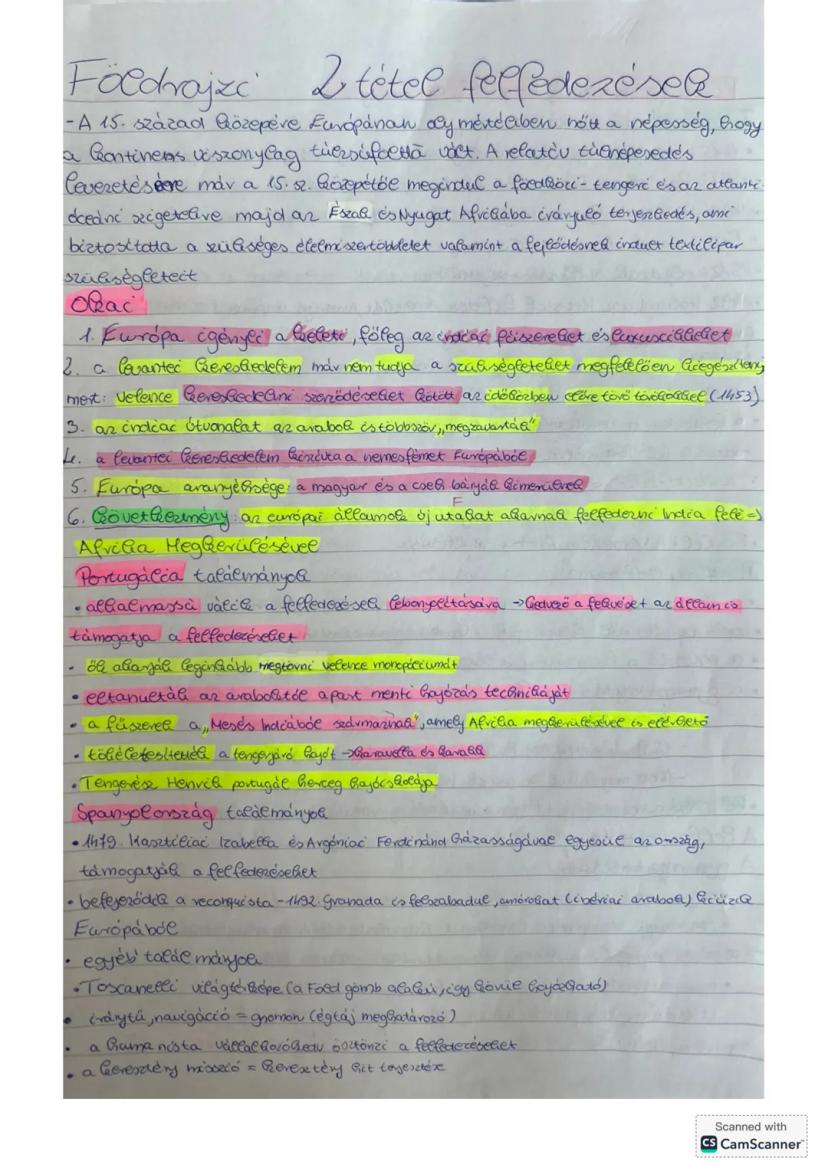 Földrajzi 2 tétel felfedezések
-A 15. század közepére Európának oly mértékben nőtt a népesség, hogy
a kontinens viszonylag túlzsúfolttá vált. A relatív túlnépesedés
levezetésére már a 15. sz. közepétől megindul a földközi-tengeri és az atlanti
óceáni szigetekre majd az Észak és Nyugat Afrikába irányuló terjeszkedés, ami
biztosította a szükséges élelmiszertöbbletet valamint a fejlődésnek indult textilipar
szükségleteit
Okai
1. Európa igényei a keleti, főleg az indiai fűszereket és luxuscikkeket
2. a levantei kereskedelem már nem tudja a szükségleteket megfelelően kiegészíteni,
mert: Velence kereskedelmi szerződéseket kötött az időközben előre törő törökökkel (1453)
3. az indiai útvonalat az arabok is többször „megzavarták"
4. a levantei kereskedelem kiszívta a nemesfémet Európából
5. Európa aranyéhsége: a magyar és a cseh bányák kimerülnek
6. Következmény: az európai államok új utakat akarnak felfedezni India felé =>
Afrika Megkerülésével
Portugália találmányok
• alkalmassá válik a felfedezések lebonyolítására → kedvező a fekvése + az állam is
támogatja a felfedezéseket
• ők akarják leginkább megtörni Velence monopóliumát
• eltanulták az araboktól a part menti hajózás technikáját
• a fűszerek a „Mesés Indiából származnak", amely Afrika megkerülésével is elérhető
• tökéletesítették a tengerjáró hajót → karavella és karakk
• Tengerész Henrik portugál herceg hajósiskolája
Spanyolország találmányok
• 1479. Kasztíliai Izabella és Aragóniai Ferdinánd házasságával egyesül az ország,
támogatják a felfedezéseket
• befejeződik a reconquista - 1492. Granada is felszabadul, a mórokat (ibériai arabok) kiűzik
Európából
• egyéb találmányok
• Toscanelli világtérképe (a Föld gömb alakú, így körül hajózható)
• iránytű, navigáció = gnomon (égtáj meghatározó)
• a humanista vállalkozókedv ösztönzi a felfedezéseket
• a keresztény misszió = keresztény hit terjesztése
Scanned with
CS CamScanner